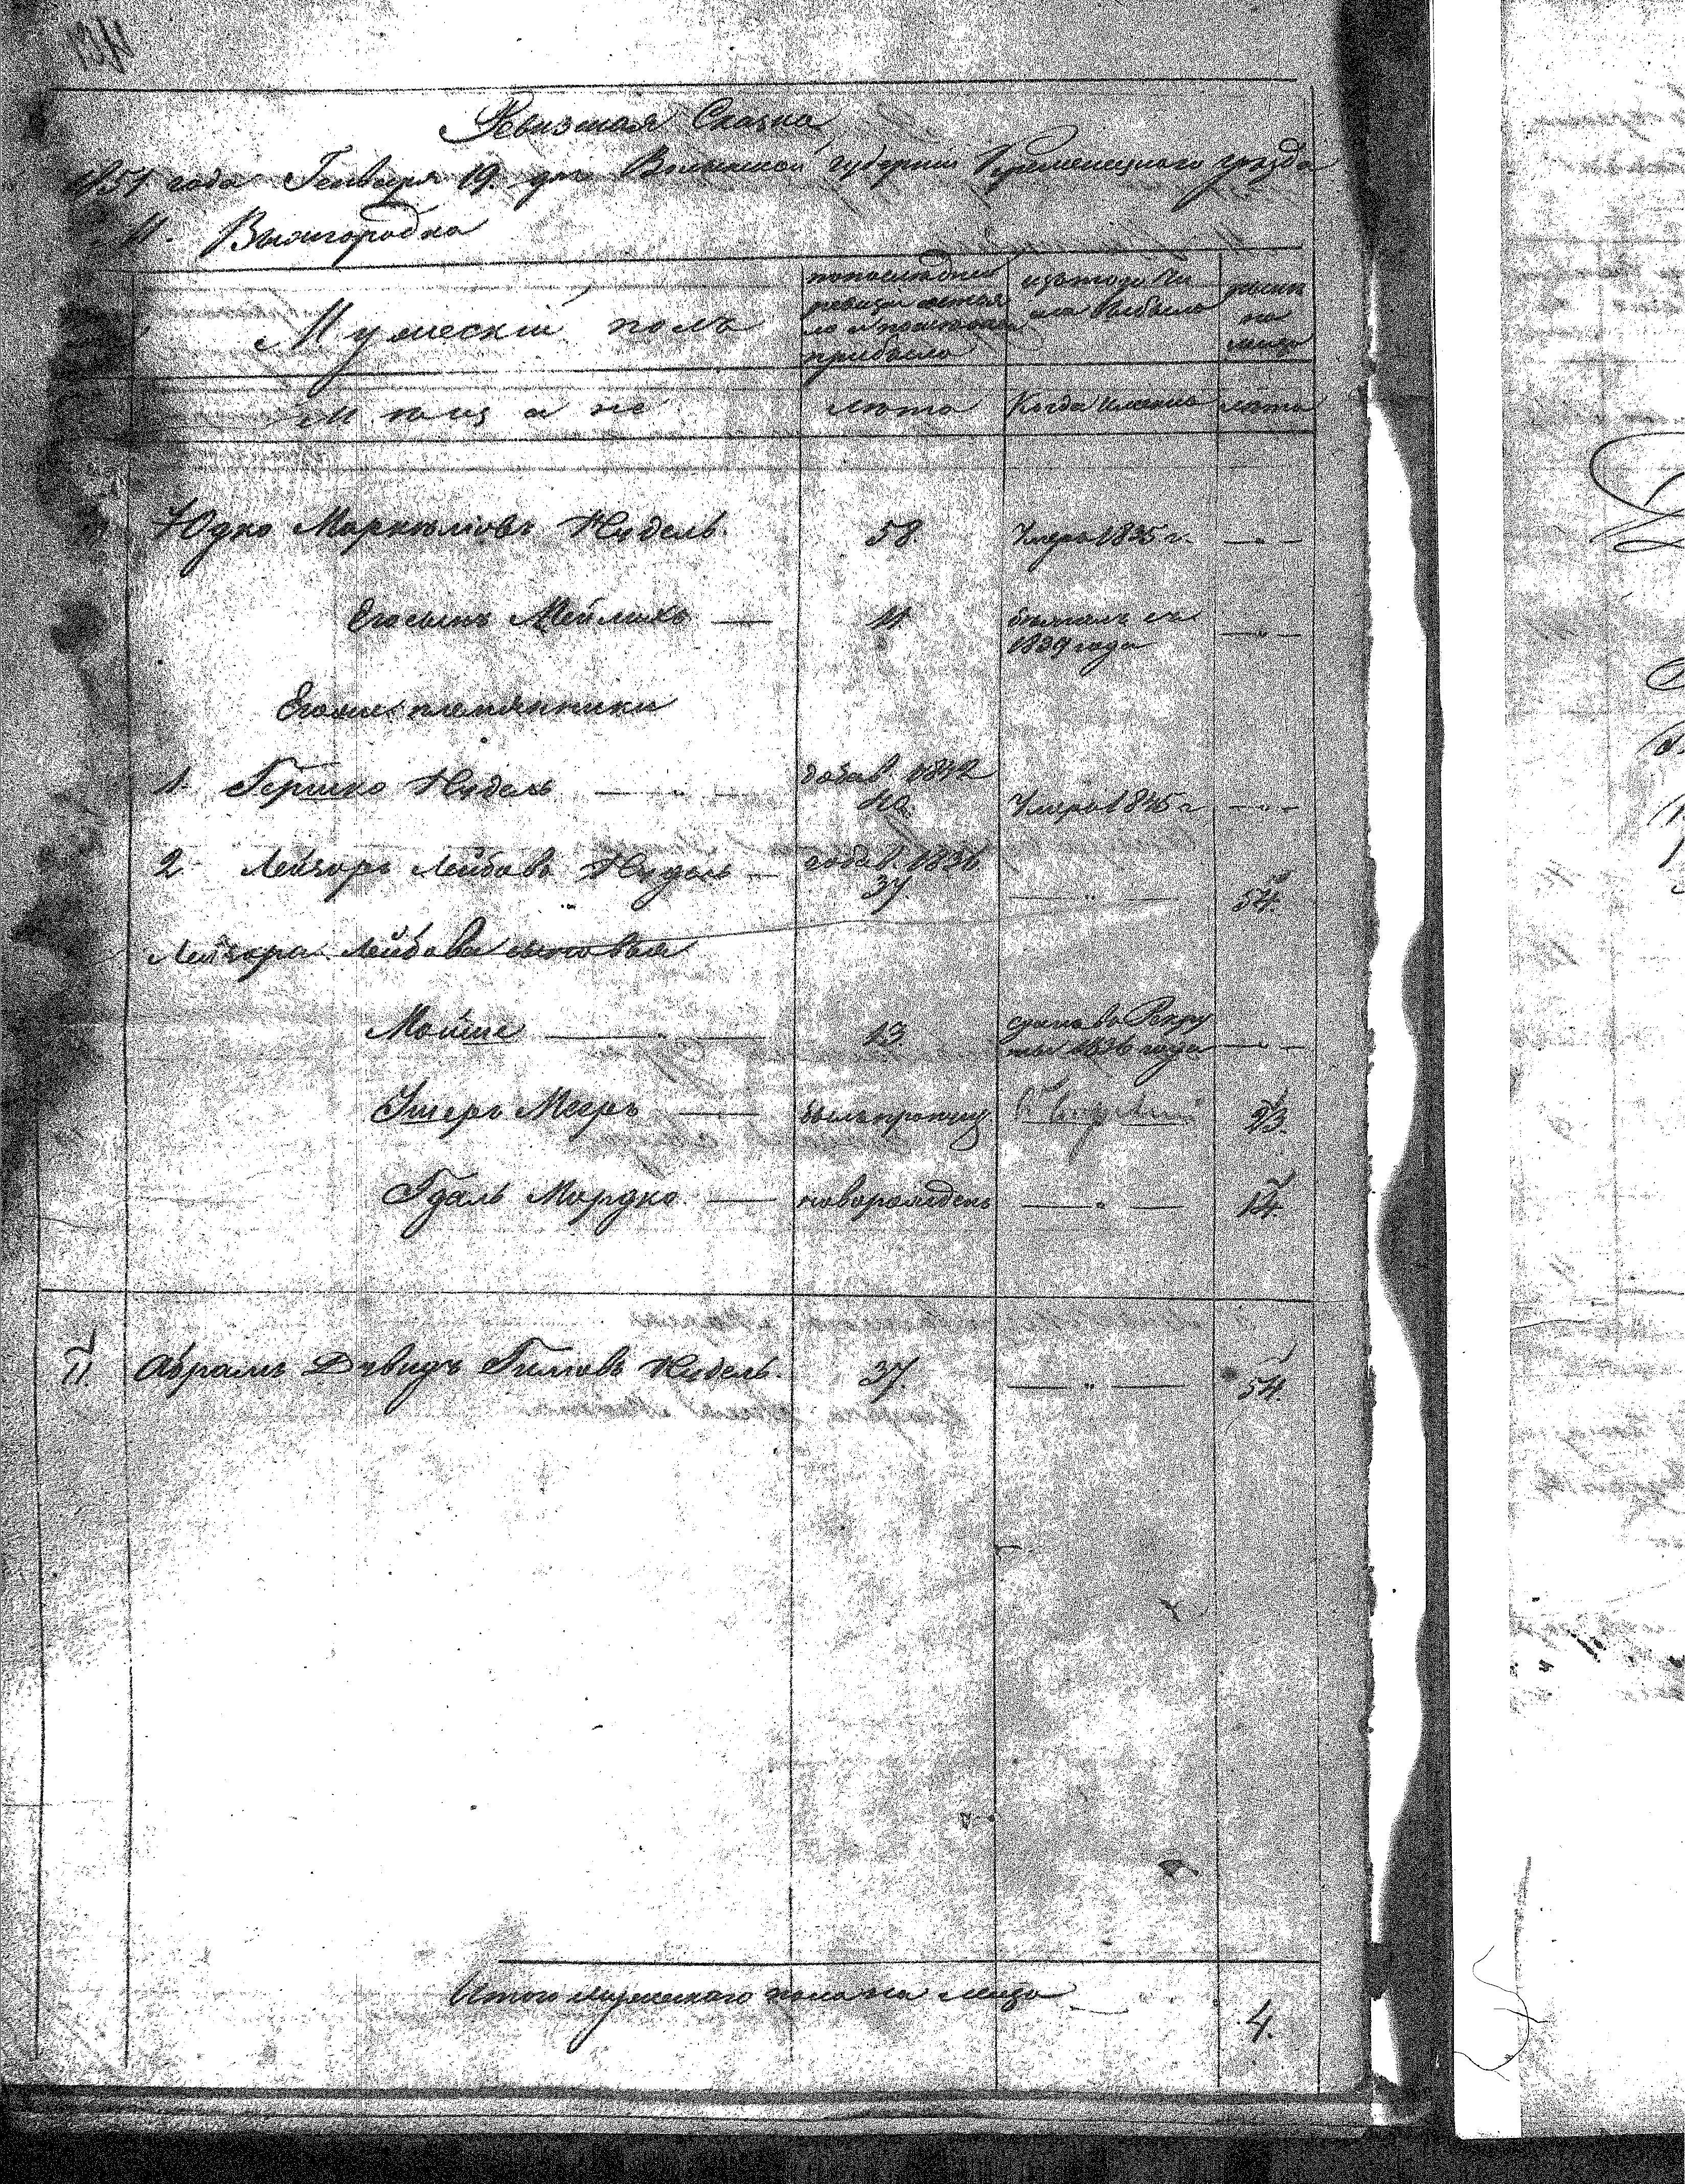 Ревизская Сказка
1851 года Генваря 19. дня Волынской губернии Кременецкого уезда
М. Вышгородка
Мужескій полъ
по последней ревизіи состояло и после того прибыло
изъ того числа выбыло
ныне на лицо
Мещане
лета
Когда именно
лета
Юдко Марколіовъ Нудель.
58
Умеръ 1835 г.
Его сынъ Мейлихъ
11
бежалъ съ
1839 года
Его же племянники
1. Гершко Нудель
добав. 1842
40.
Умеръ 1845 г.
2. Лейзоръ Лейбовъ Нудель
добав. 1836
37.
54.
Лейзора Лейбова сыновья
Мойше
13
сданъ въ Рекру
ты 1836 года
Ушеръ Мееръ
былъ пропущ.
23.
Гдаль Мордко
новорожденъ
14.
11. Абрамъ Дувидъ Гилювъ Нудель.
37.
54.
Итого мужескаго пола на лицо
4.